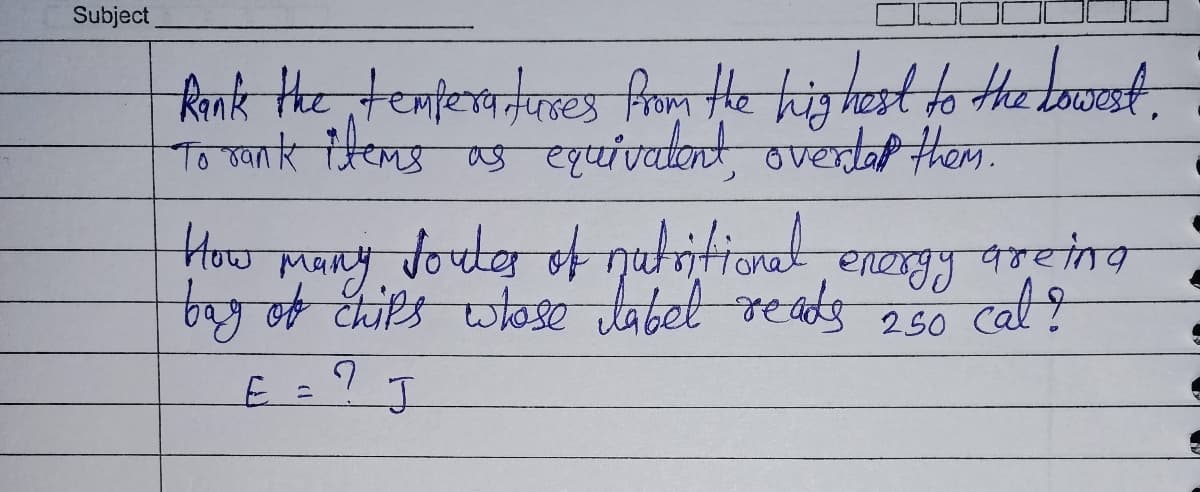 Subject
Rank the temperatures from the highest to the lowest.
To rank items as equivalent, overlap them.
How many Joules of nutritional energy are in a
bag of chips whose label reads 250 cal?
E = ? J